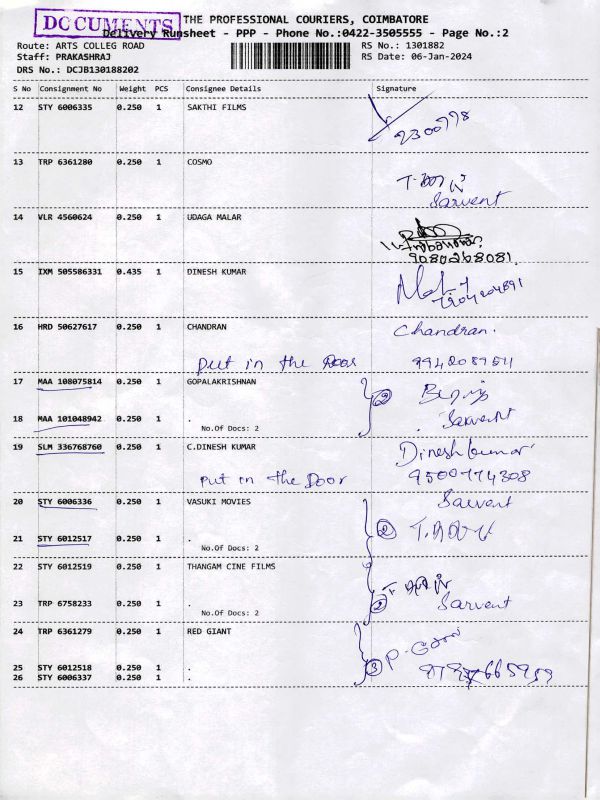 DOCUMENTS
THE PROFESSIONAL COURIERS, COIMBATORE
Delivery Runsheet - PPP - Phone No.:0422-3505555 - Page No.:2
Route: ARTS COLLEG ROAD
Staff: PRAKASHRAJ
DRS No.: DCJB130188202
RS No.: 1301882
RS Date: 06-Jan-2024
S No Consignment No Weight PCS Consignee Details Signature
12 STY 6006335 0.250 1 SAKTHI FILMS
13 TRP 6361280 0.250 1 COSMO
Sarvent
14 VLR 4560624 0.250 1 UDAGA MALAR
9080268081
15 IXM 505586331 0.435 1 DINESH KUMAR
16 HRD 50627617 0.250 1 CHANDRAN Chandran.
Put in the Door
17 MAA 108075814 0.250 1 GOPALAKRISHNAN
2
18 MAA 101048942 0.250 1 . Sarvent
No.Of Docs: 2
19 SLM 336768760 0.250 1 C.DINESH KUMAR Dineshkumar
Put in the Door 9500774308
20 STY 6006336 0.250 1 VASUKI MOVIES Sarvent
2
21 STY 6012517 0.250 1 .
No.Of Docs: 2
22 STY 6012519 0.250 1 THANGAM CINE FILMS
23 TRP 6758233 0.250 1 . 2 Sarvent
No.Of Docs: 2
24 TRP 6361279 0.250 1 RED GIANT
3
25 STY 6012518 0.250 1 .
26 STY 6006337 0.250 1 .